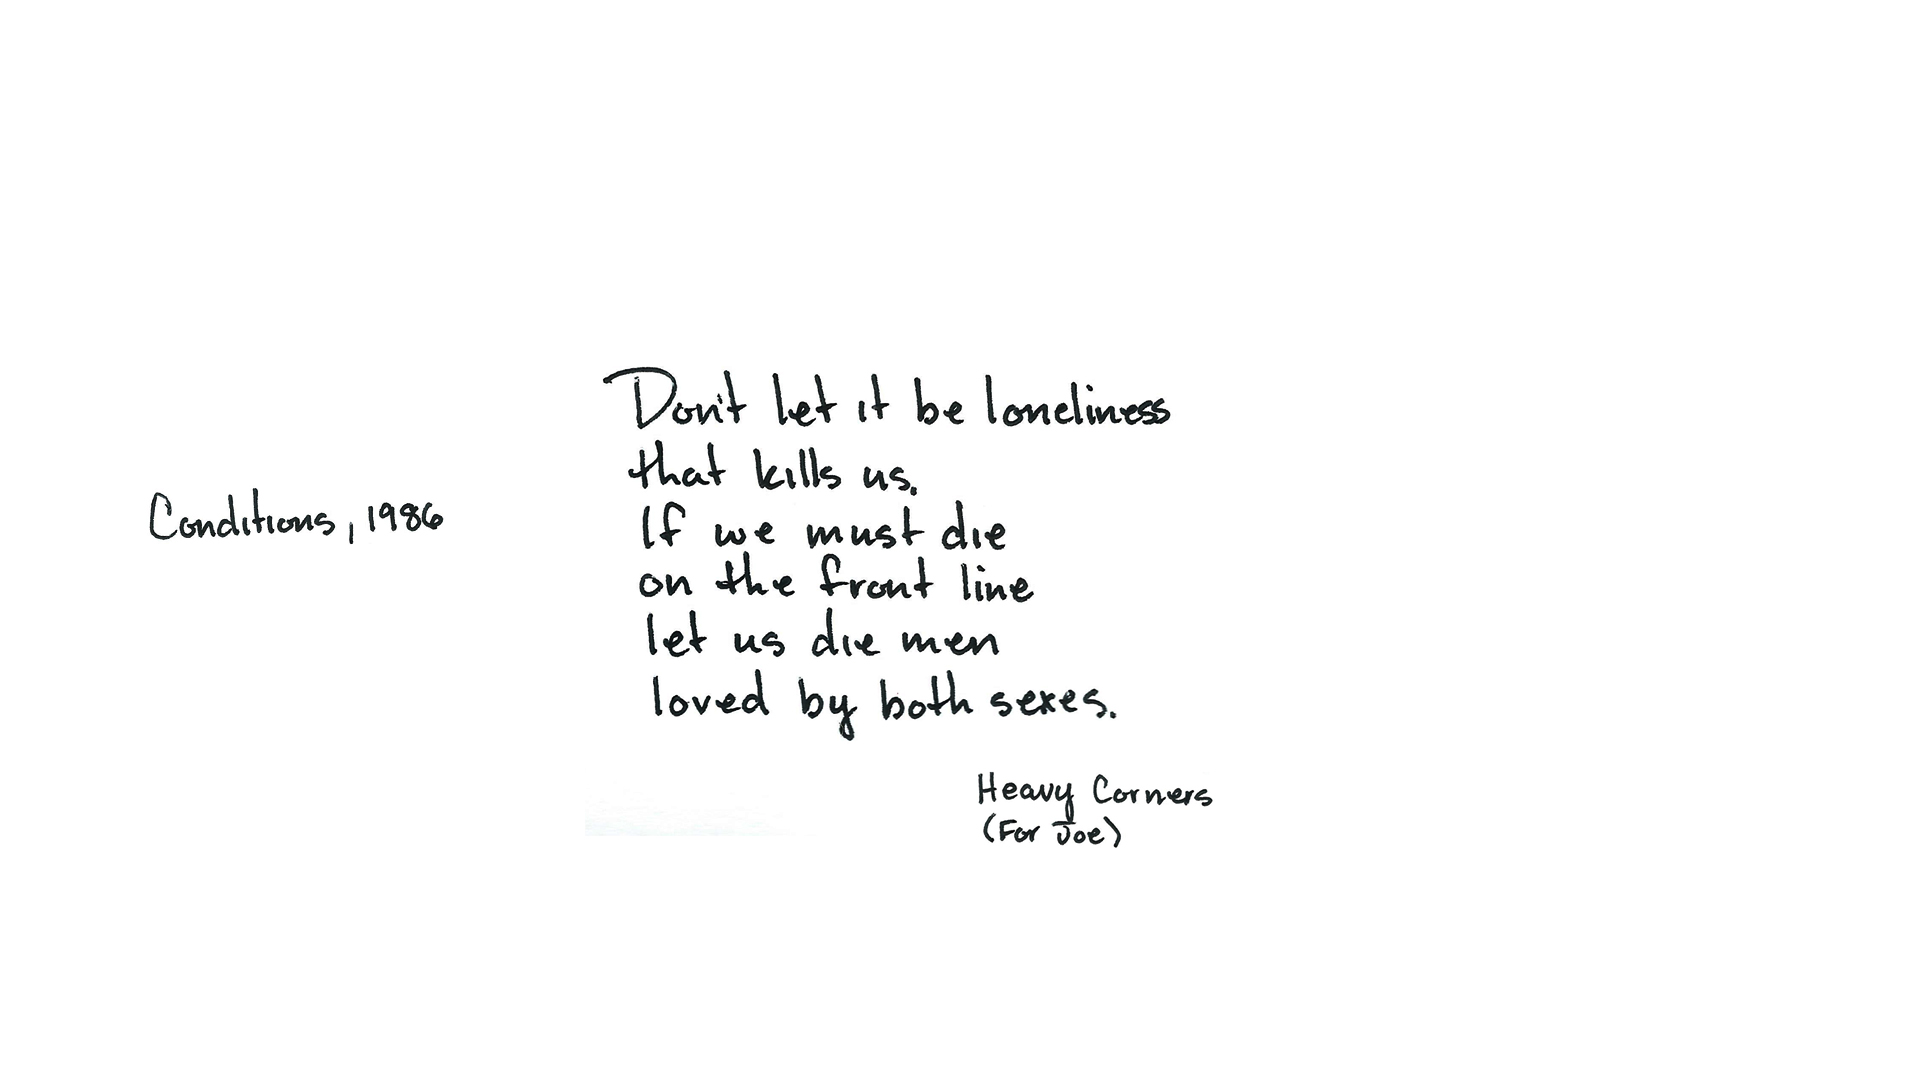 Conditions, 1986
Don't let it be loneliness
that kills us.
If we must die
on the front line
let us die men
loved by both sexes.
Heavy Corners
(For Joe)